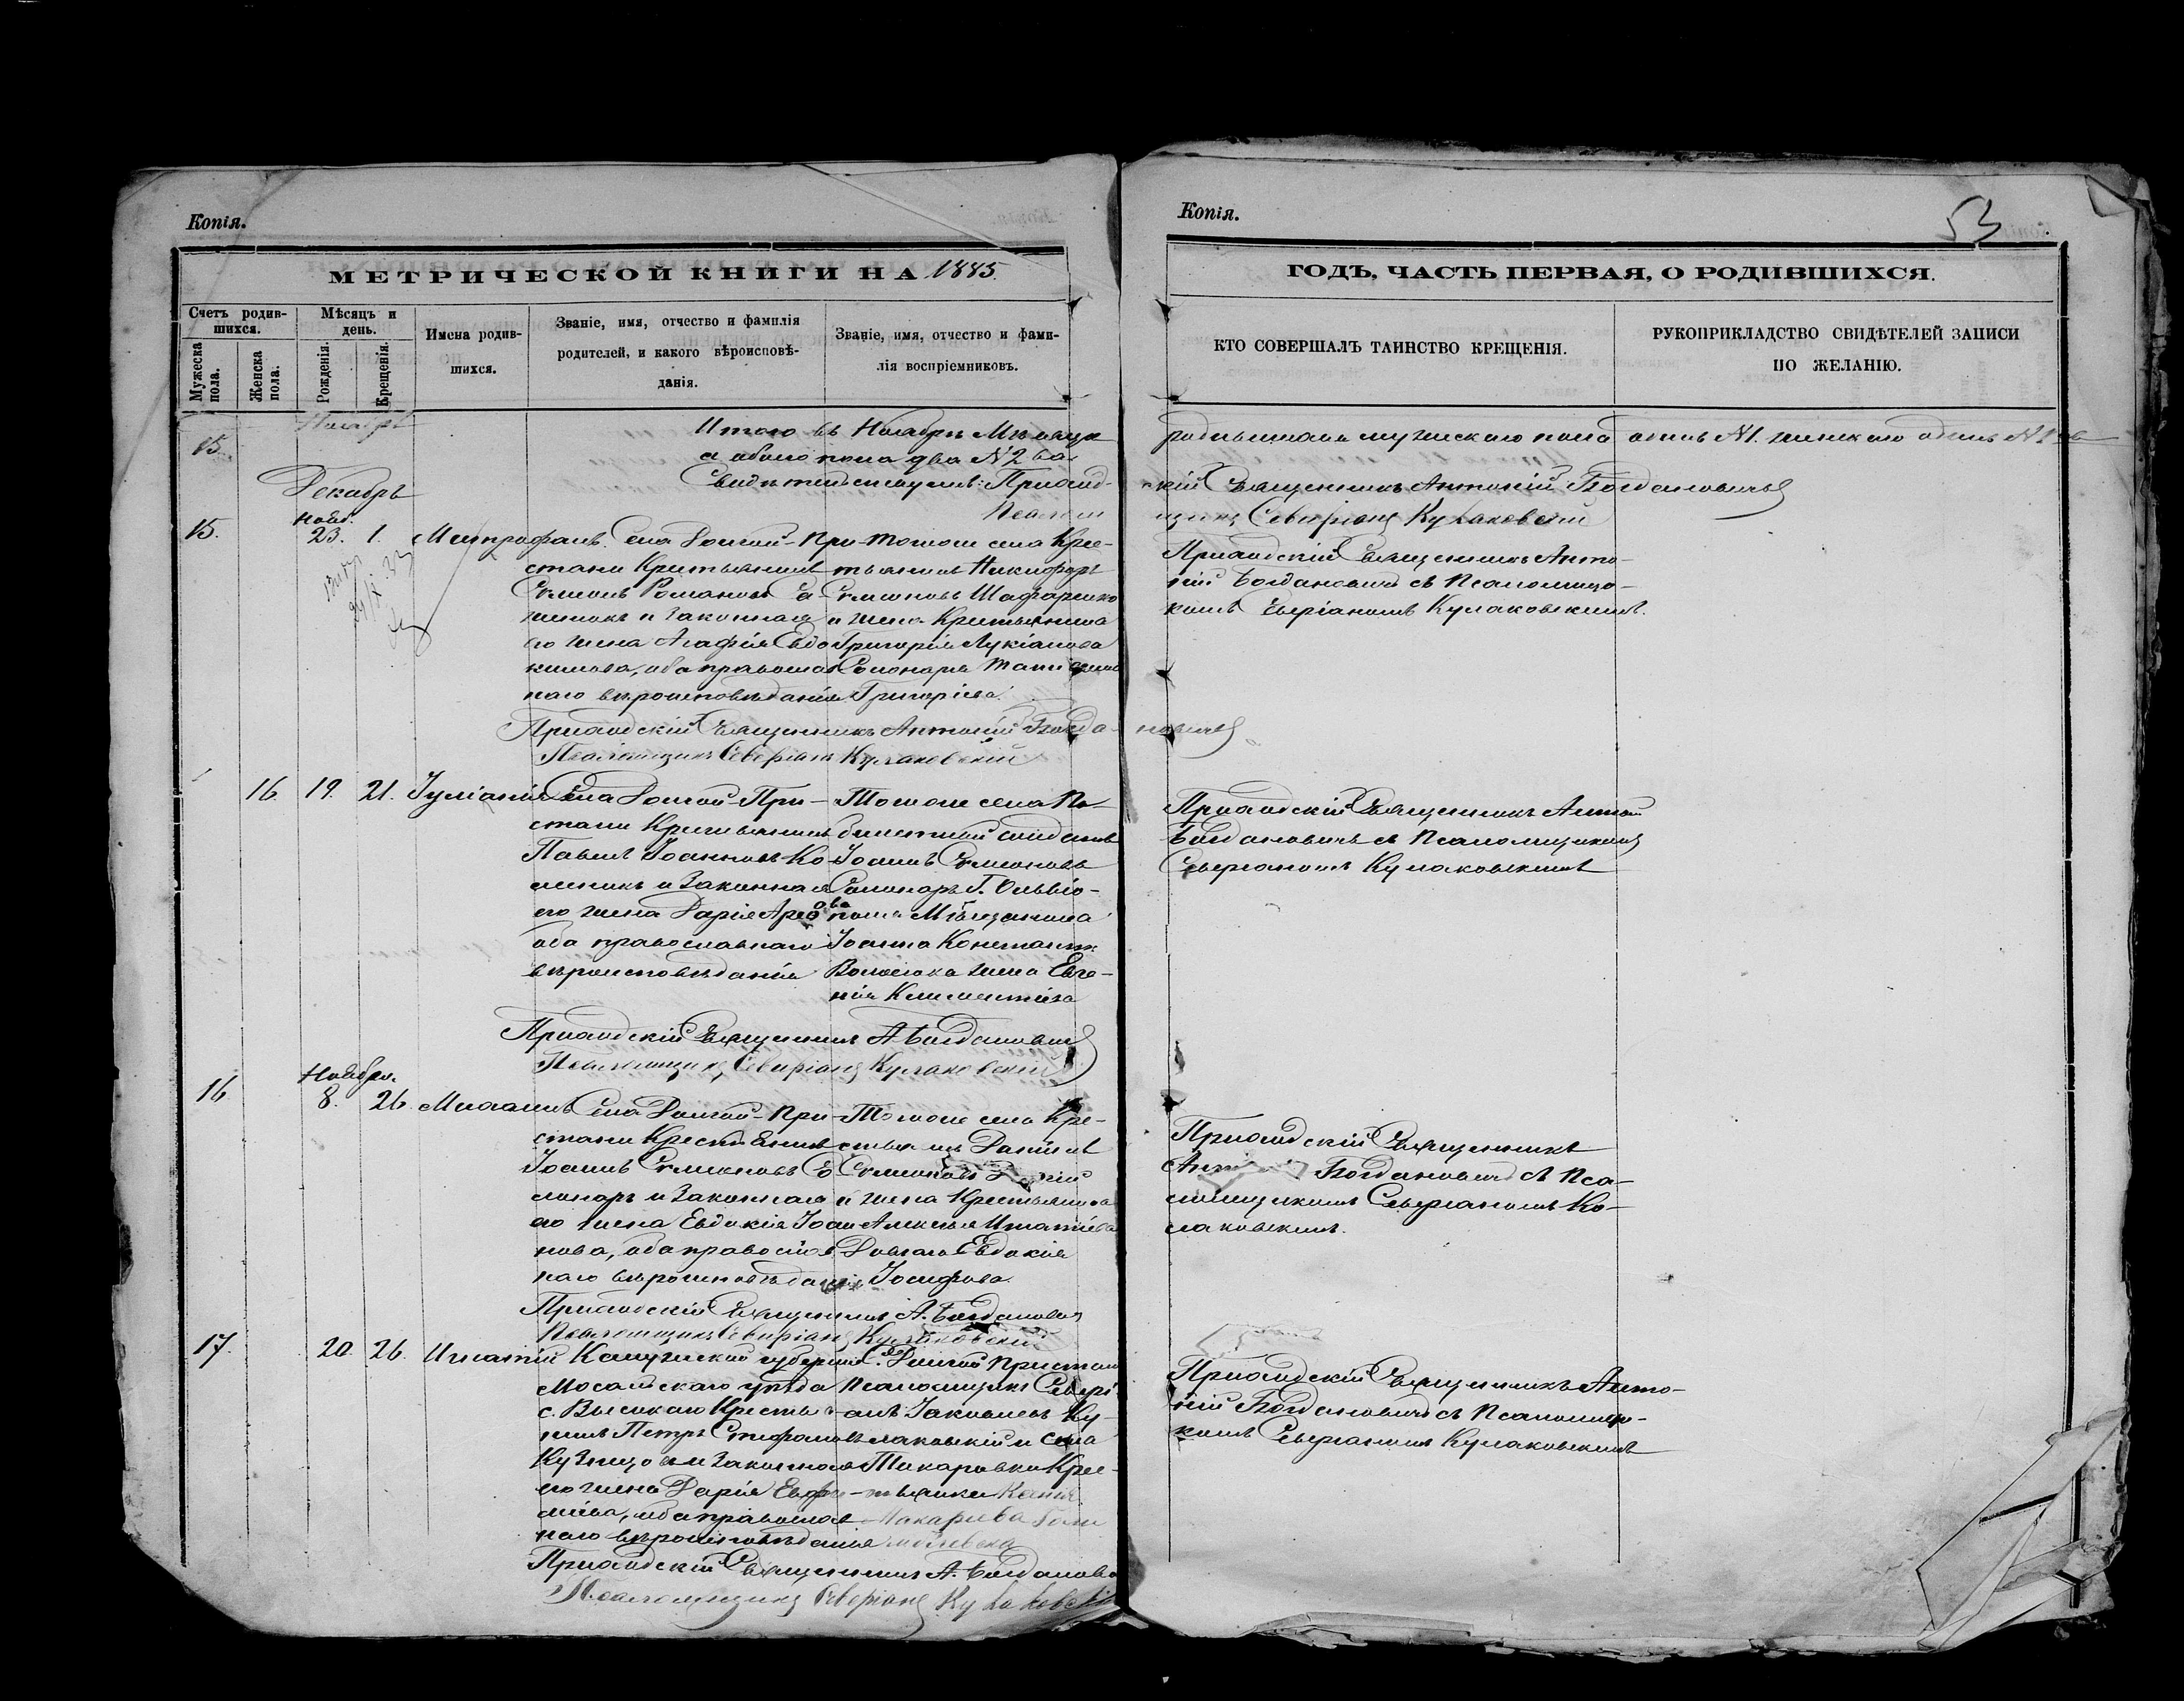 Копія.
МЕТРИЧЕСКОЙ КНИГИ НА 1885
Счетъ родив-
шихся.
Мужеска
пола.
Женска
пола.
Мѣсяцъ и
день.
Рожденія.
Крещенія.
Имена родив-
шихся.
Званіе, имя, отчество и фамилія
родителей, и какого вѣроисповѣ-
данія.
Званіе, имя, отчество и фами-
лія воспріемниковъ.
15.
Ноябрь
Итого въ Ноябрѣ Мѣсяцѣ
а обоего пола два №2
Свидѣтельствуемъ: Приход-
Псалом
Декабрь
15.
Нояб.
23. 1.
Митрофанъ
Села Долгой-При-
стани Крестьянинъ
Симеонъ Романовъ
и законная
его жена Агафія Евдо
кимова, оба православ
наго вѣроисповѣданія
Того же села Кре-
стьянинъ Никифоръ
Симеоновъ
и жена Крестьянина
Григорія Лукіанова
Григоріева.
Приходскій Священникъ Антоній Богда-
новичъ
Псаломщикъ Северіанъ Кулаковскій
16. 19. 21.
Іуліанія
Села Долгой-При-
стани Крестьянинъ
Павелъ Іоанновъ Ко-
и Законная
его жена Дарія
оба православнаго
вѣроисповѣданія
Того же села
билетный солдатъ
Іоаннъ Симеоновъ
Г. Ольвіо-
поля Мѣщанина
Іоанна
жена Евге-
нія Климентіева
Приходскій Священникъ А Богдановичъ
Псаломщикъ Северіанъ Кулаковскій
16
Ноября.
8. 26.
Михаилъ
Села Долгой-При-
стани Крестьянинъ
Іоаннъ Симеоновъ
и Законная
его жена Евдокія Іоан
нова, оба православ
наго вѣроисповѣданія
Того же села Кре-
стьянинъ Даніилъ
Симеоновъ
и жена Крестьянина
Алексѣя Игнатіева
Евдокія
Іосифова
Приходскій Священникъ А. Богдановичъ
Псаломщикъ Северіанъ Кулаковскій
17. 20. 26.
Игнатій
Калужской губерніи
Мосальскаго уѣзда
с. Высокаго Крестья-
нинъ Петръ Стефановъ
Кузнецовъ и Законная
его жена Дарія Евфи-
міева, оба православ
наго вѣроисповѣданія
С. Долгой Пристани
Псаломщикъ Севері-
анъ Іаковлевъ Ку-
лаковскій и села
Кре-
стьянка
Макаріева
Приходскій Священникъ А. Богданови
Псаломщикъ Северіанъ Кулаковскій
Копія.
53
ГОДЪ, ЧАСТЬ ПЕРВАЯ, О РОДИВШИХСЯ.
КТО СОВЕРШАЛЪ ТАИНСТВО КРЕЩЕНІЯ.
РУКОПРИКЛАДСТВО СВИДѢТЕЛЕЙ ЗАПИСИ
ПО ЖЕЛАНІЮ.
родившихся мужескаго пола одинъ №1. женскаго одинъ №1
скій Священникъ Антоній Богдановичъ
щикъ Северіанъ Кулаковскій
Приходскій Священникъ Анто-
ній Богдановичъ съ Псаломщи-
комъ Северіаномъ Кулаковскимъ.
Приходскій Священникъ Антоній
Богдановичъ съ Псаломщикомъ
Северіаномъ Кулаковскимъ
Приходскій Священникъ
Богдановичъ съ Пса-
ломщикомъ Северіаномъ Ку-
лаковскимъ.
Приходскій Священникъ Анто-
ній Богдановичъ съ Псаломщи-
комъ Северіаномъ Кулаковскимъ